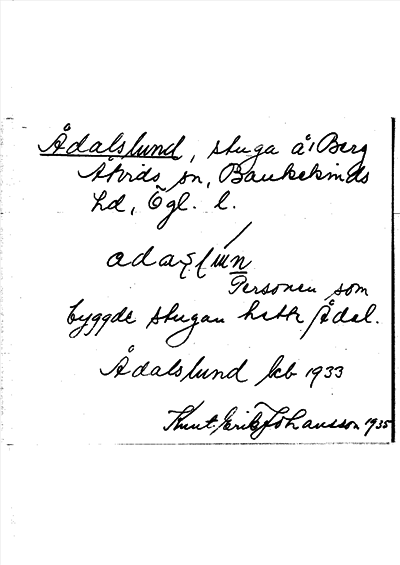 Ådalslund, stuga å Berg
Åtvids sn, Bankekinds
hd, Ögl. l.
Personen som
byggde stugan hette Ådal.
Ådalslund kb 1933
Knut Erik Johansson 1935